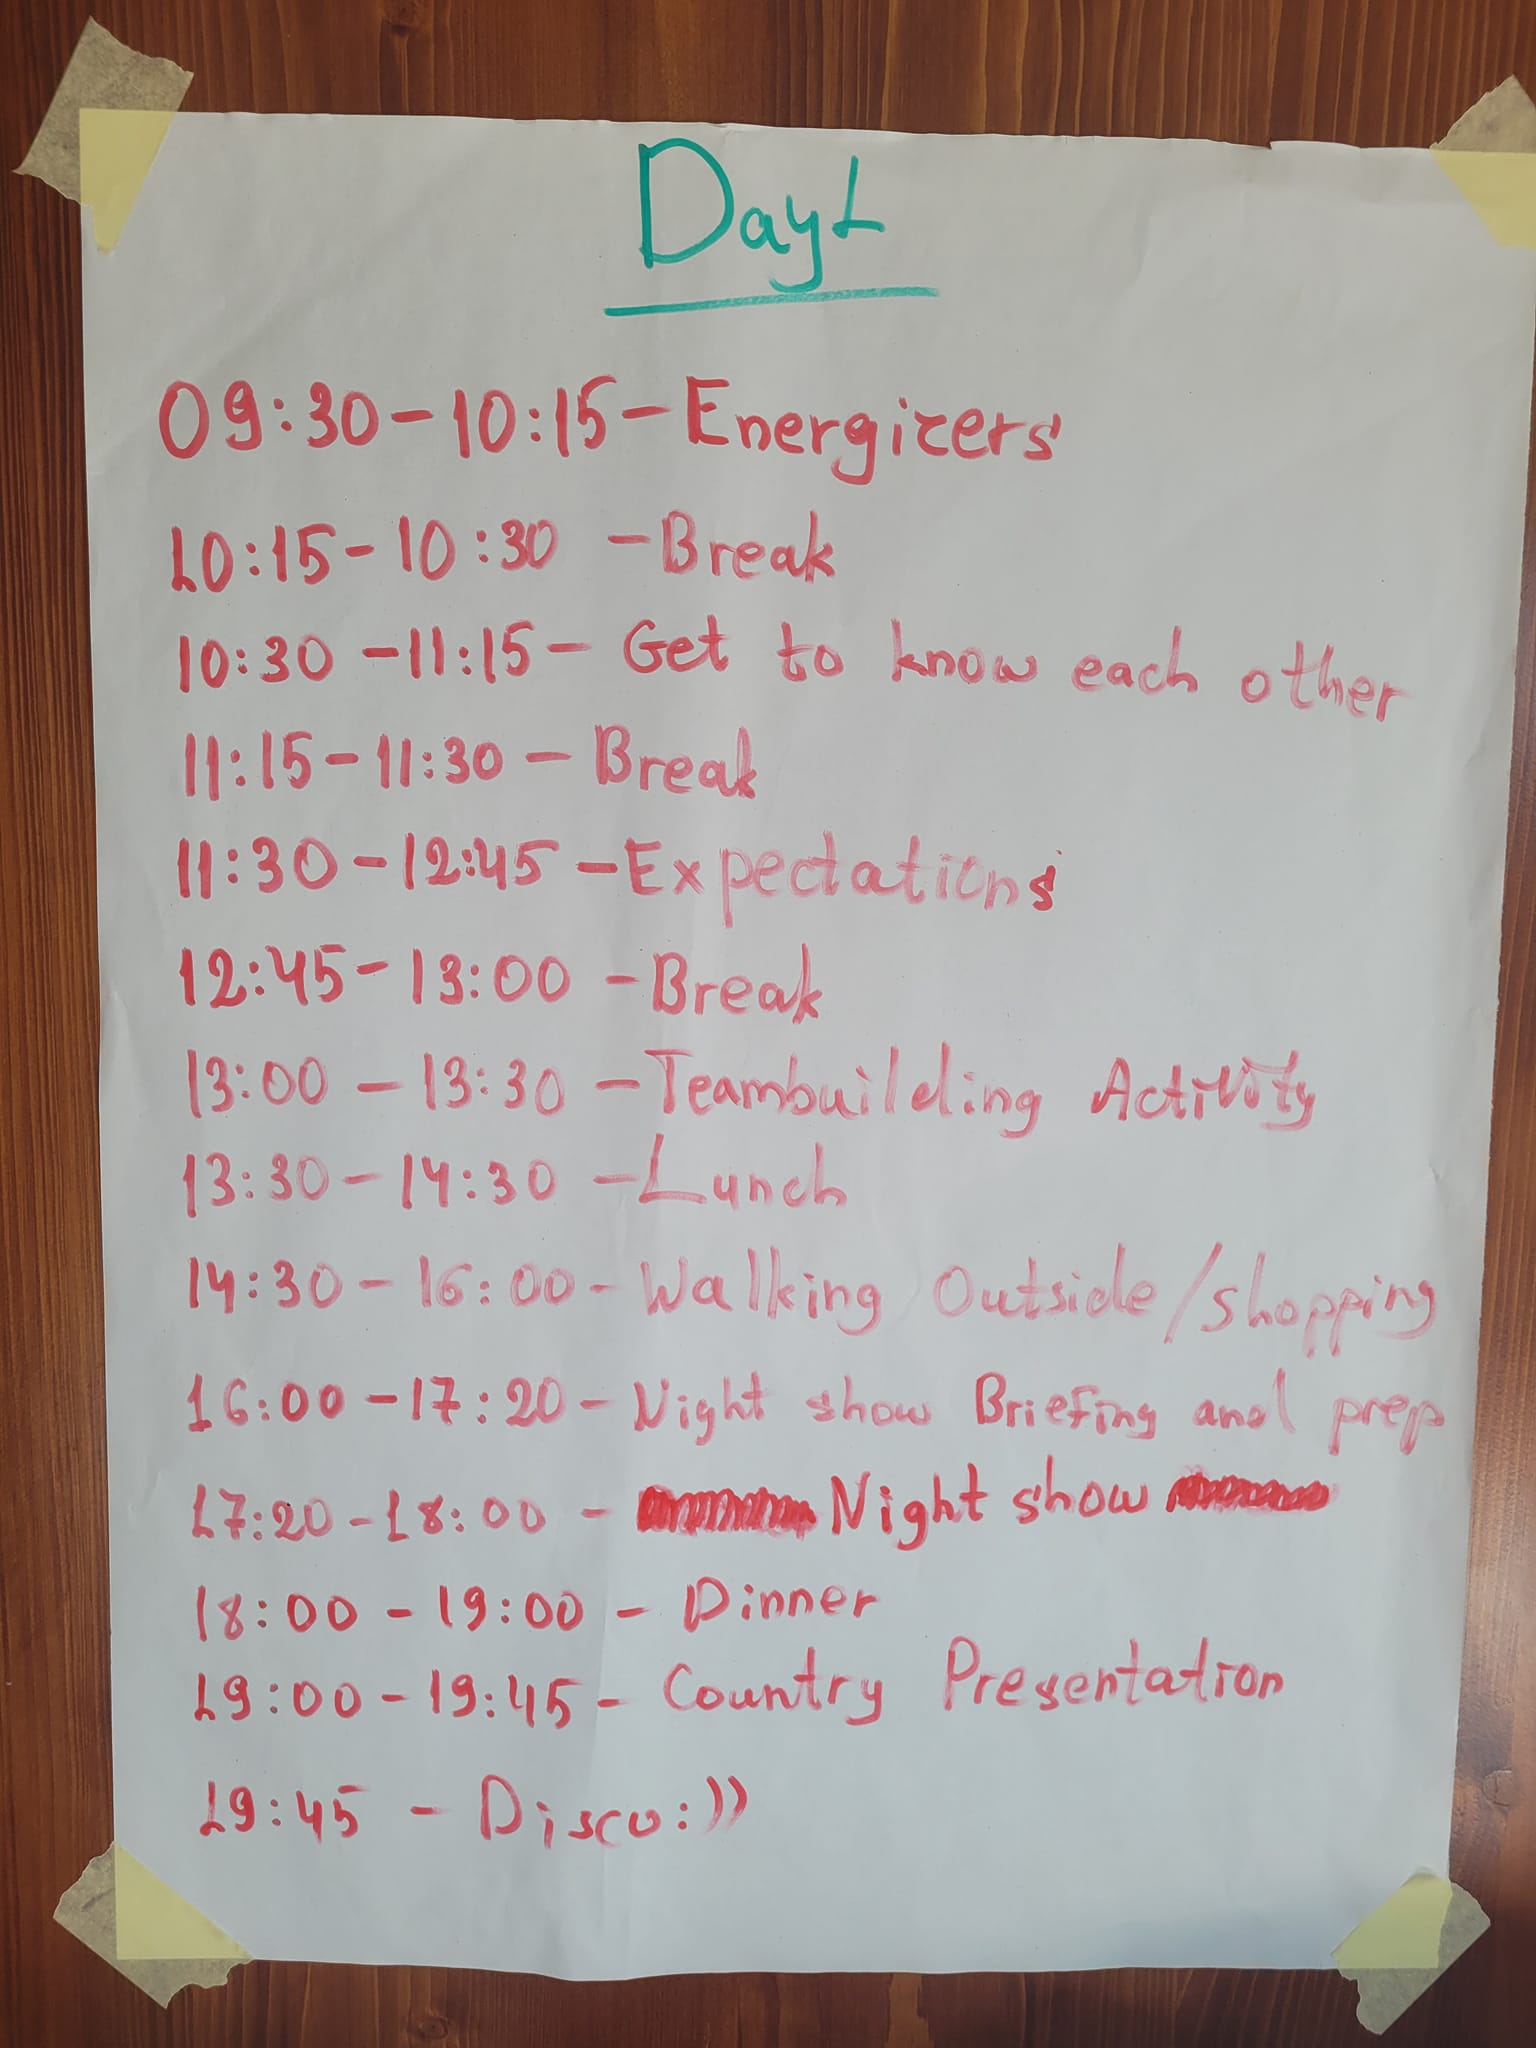 Day 1
09:30 - 10:15 - Energizers
10:15 - 10:30 - Break
10:30 - 11:15 - Get to know each other
11:15 - 11:30 - Break
11:30 - 12:45 - Expectations
12:45 - 13:00 - Break
13:00 - 13:30 - Teambuilding Activity
13:30 - 14:30 - Lunch
14:30 - 16:00 - Walking Outside/shopping
16:00 - 17:20 - Night show Briefing and prep
17:20 - 18:00 - Night show
18:00 - 19:00 - Dinner
19:00 - 19:45 - Country Presentation
19:45 - Disco:))